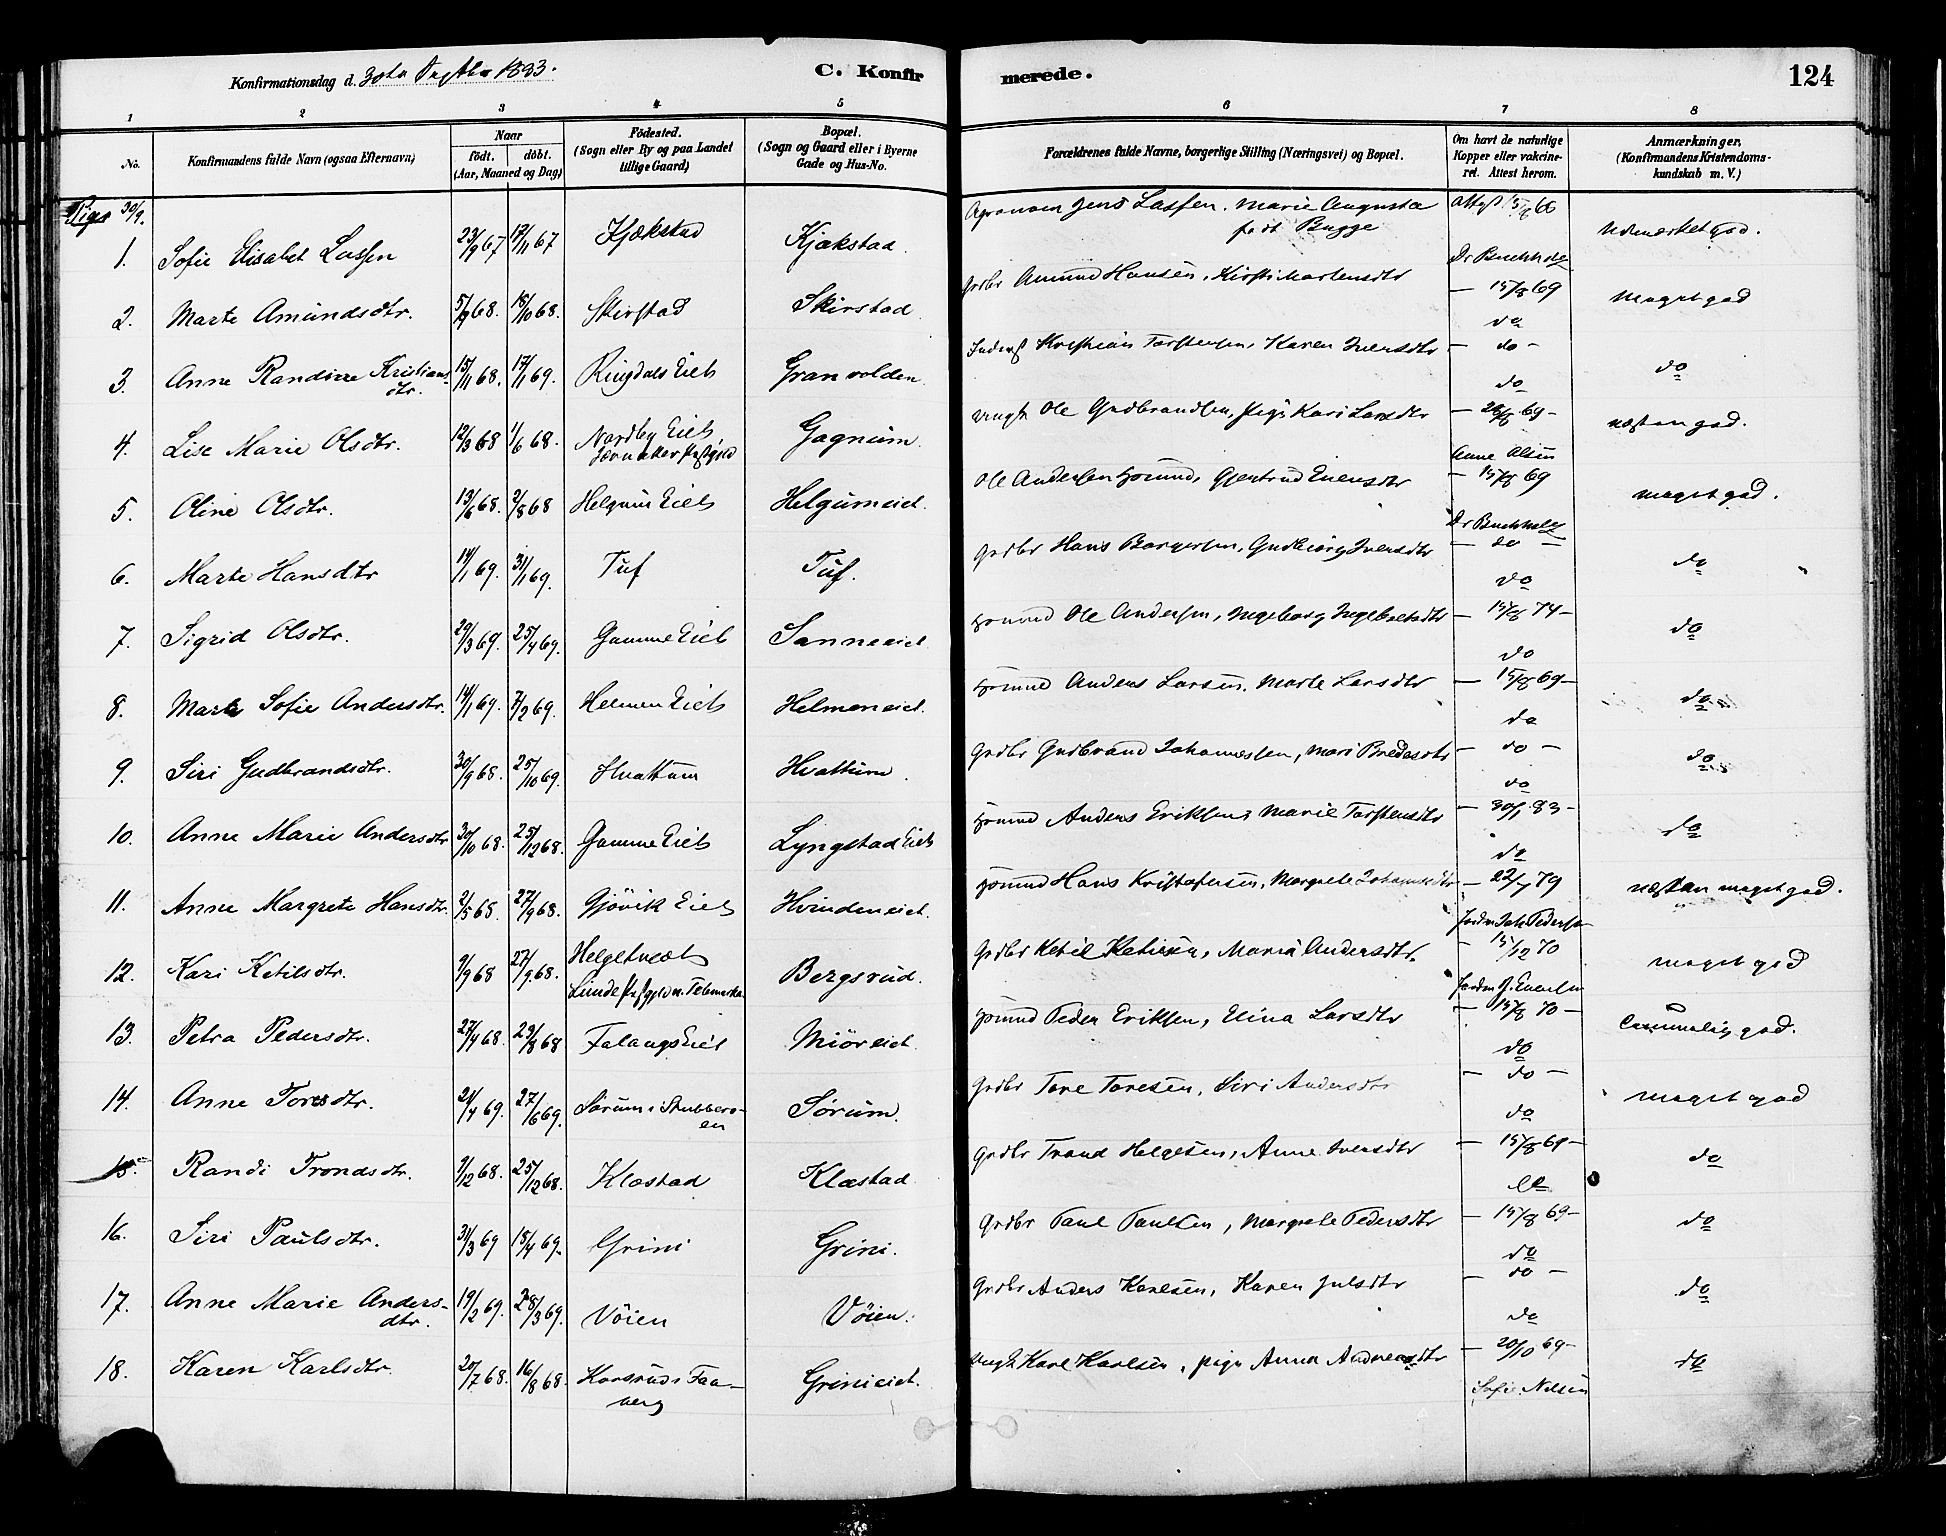 Konfirmationsdag d. 30te Septbr 1883.
C. Konfirmerede.
124
1 2 3 4 5 6 7 8
No.
Konfirmandens fulde Navn (ogsaa Efternavn)
Naar
födt. döbt.
(Aar, Maaned og Dag)
Födested.
(Sogn eller By og paa Landet tillige Gaard)
Bopæl.
(Sogn og Gaard eller i Byerne Gade og Hus-No.
Forældrenes fulde Navne, borgerlige Stilling (Næringsvei) og Bopæl.
Om havt de naturlige Kopper eller vakcineret. Attest herom.
Anmærkninger,
(Konfirmandens Kristendomskundskab m. V.)
Piger 30/9.
1. Sofie Elisabet Lassen 23/9 67 17/11 67 Kjækstad Kjækstad. Agronom Jens Lassen. Marie Augusta født Bugge Attest 15/8 66 Dr Buchholz Udmærket god.
2. Marte Amundsdtr. 5/9 68. 18/10 68. Skirstad Skirstad Grdbr Amund Hansen, Kirsti Mortensdtr — 15/8 69 do Meget god
3. Anne Randine Kristiansdtr. 15/11 68. 17/1 69. Ringdals Eiet Granvolden. Inderst Kristian Torstensen, Karen Iversdtr — do — do do
4. Lise Marie Olsdtr. 12/3 68 1/6 68. Nordby Eiet Jevnaker Prstgjeld Gagnum. Ungk Ole Gudbrandsen, Pige Kari Larsdtr — 28/8 69 — Anne Olsen næsten god.
5. Oline Olsdtr. 13/6 68. 2/8 68 Helgum Eiet Helgumeiet. Ole Andersen Husmd, Gjertrud Evensdtr — 15/8 69 Dr Buchholz meget god.
6. Marte Hansdtr 14/1 69. 31/1 69. Tuf Tuf. Grdbr Hans Borgersen, Gudbjørg Iversdtr — do — do do
7. Sigrid Olsdtr. 29/3 69. 25/4 69. Gamme Eiet Sanneeiet. Husmd Ole Andersen, Ingeborg Ingebretsdtr — 15/8 74 — do do
8. Marte Sofie Andersdtr. 14/1 69. 7/2 69. Helmen Eiet Helmeneiet. Husmd Anders Larsen. Marte Larsdtr — 15/8 69 — do do
9. Siri Gudbrandsdtr. 30/9 68. 25/10 69. Hvattum Hvattum. Grdbr Gudbrand Johannessen, Mari Bredesdtr — do — do do
10. Anne Marie Andersdtr 30/10 68. 25/12 68. Gamme Eiet Lyngstad Eiet Husmd Anders Eriksen, Marie Torstensdtr — 30/1 83 — do do
11. Anne Margrete Hansdtr. 2/5 68. 27/9 68. Gjövik Eiet Hvindeneiet. Husmd Hans Kristofersen, Margrete Johannesdtr — 22/7 79 Jordm Joh. Pedersen næsten meget god.
12. Kari Ketilsdtr. 9/9 68 27/9 68. Lunde Prstgjeld n. Telemarken Bergsrud. Grdbr Ketil Ketilsen, Maria Andersdtr. — 15/12 70 meget god
13. Petra Pedersdtr. 27/4 68. 23/8 68 Falangs Eiet Miöreiet. Husmd Peder Eriksen, Elina Larsdtr — 15/8 70 — do Temmelig god.
14. Anne Toresdtr. 21/4 69. 27/6 69. Sörum i Stubberoen Sörum. Grdbr Tore Toresen, Siri Andersdtr — do — do meget god
15. Randi Trondsdtr. 9/12 68. 25/12 68. Klæstad Klæstad Grdbr Trond Helgesen, Anne Iversdtr — 15/8 69 — do do
16. Siri Paulsdtr. 31/3 69 18/4 69. Grini Grini. Grdbr Paul Paulsen, Margrete Pedersdtr — 15/8 69 — do do
17. Anne Marie Andersdtr. 19/2 69. 28/3 69. Vöien Vöien. Grdbr Anders Karlsen, Karen Julsdtr — do — do do
18. Karen Karlsdtr. 20/7 68. 16/8 68. Korsrud i Faaberg Grinieiet. Ungk Karl Karlsen, Pige Anna Andreasdtr — 20/10 69 — Sofie Nelsen do